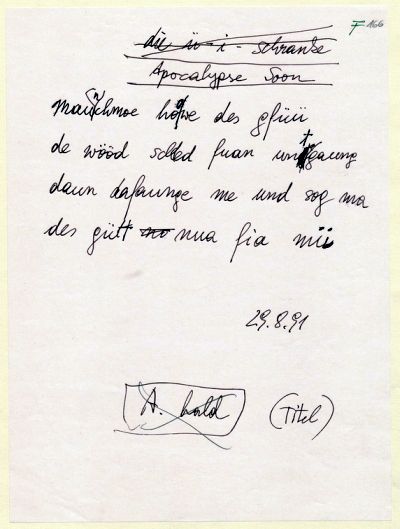 F 166
die ü-i-schranke
Apocalypse Soon
maunchmoe howe des gfüü
de wööd fuan untgaung
daun dafaunge me und sog ma
des gütt no nua fia mii
29.8.91
A. bald (Titel)